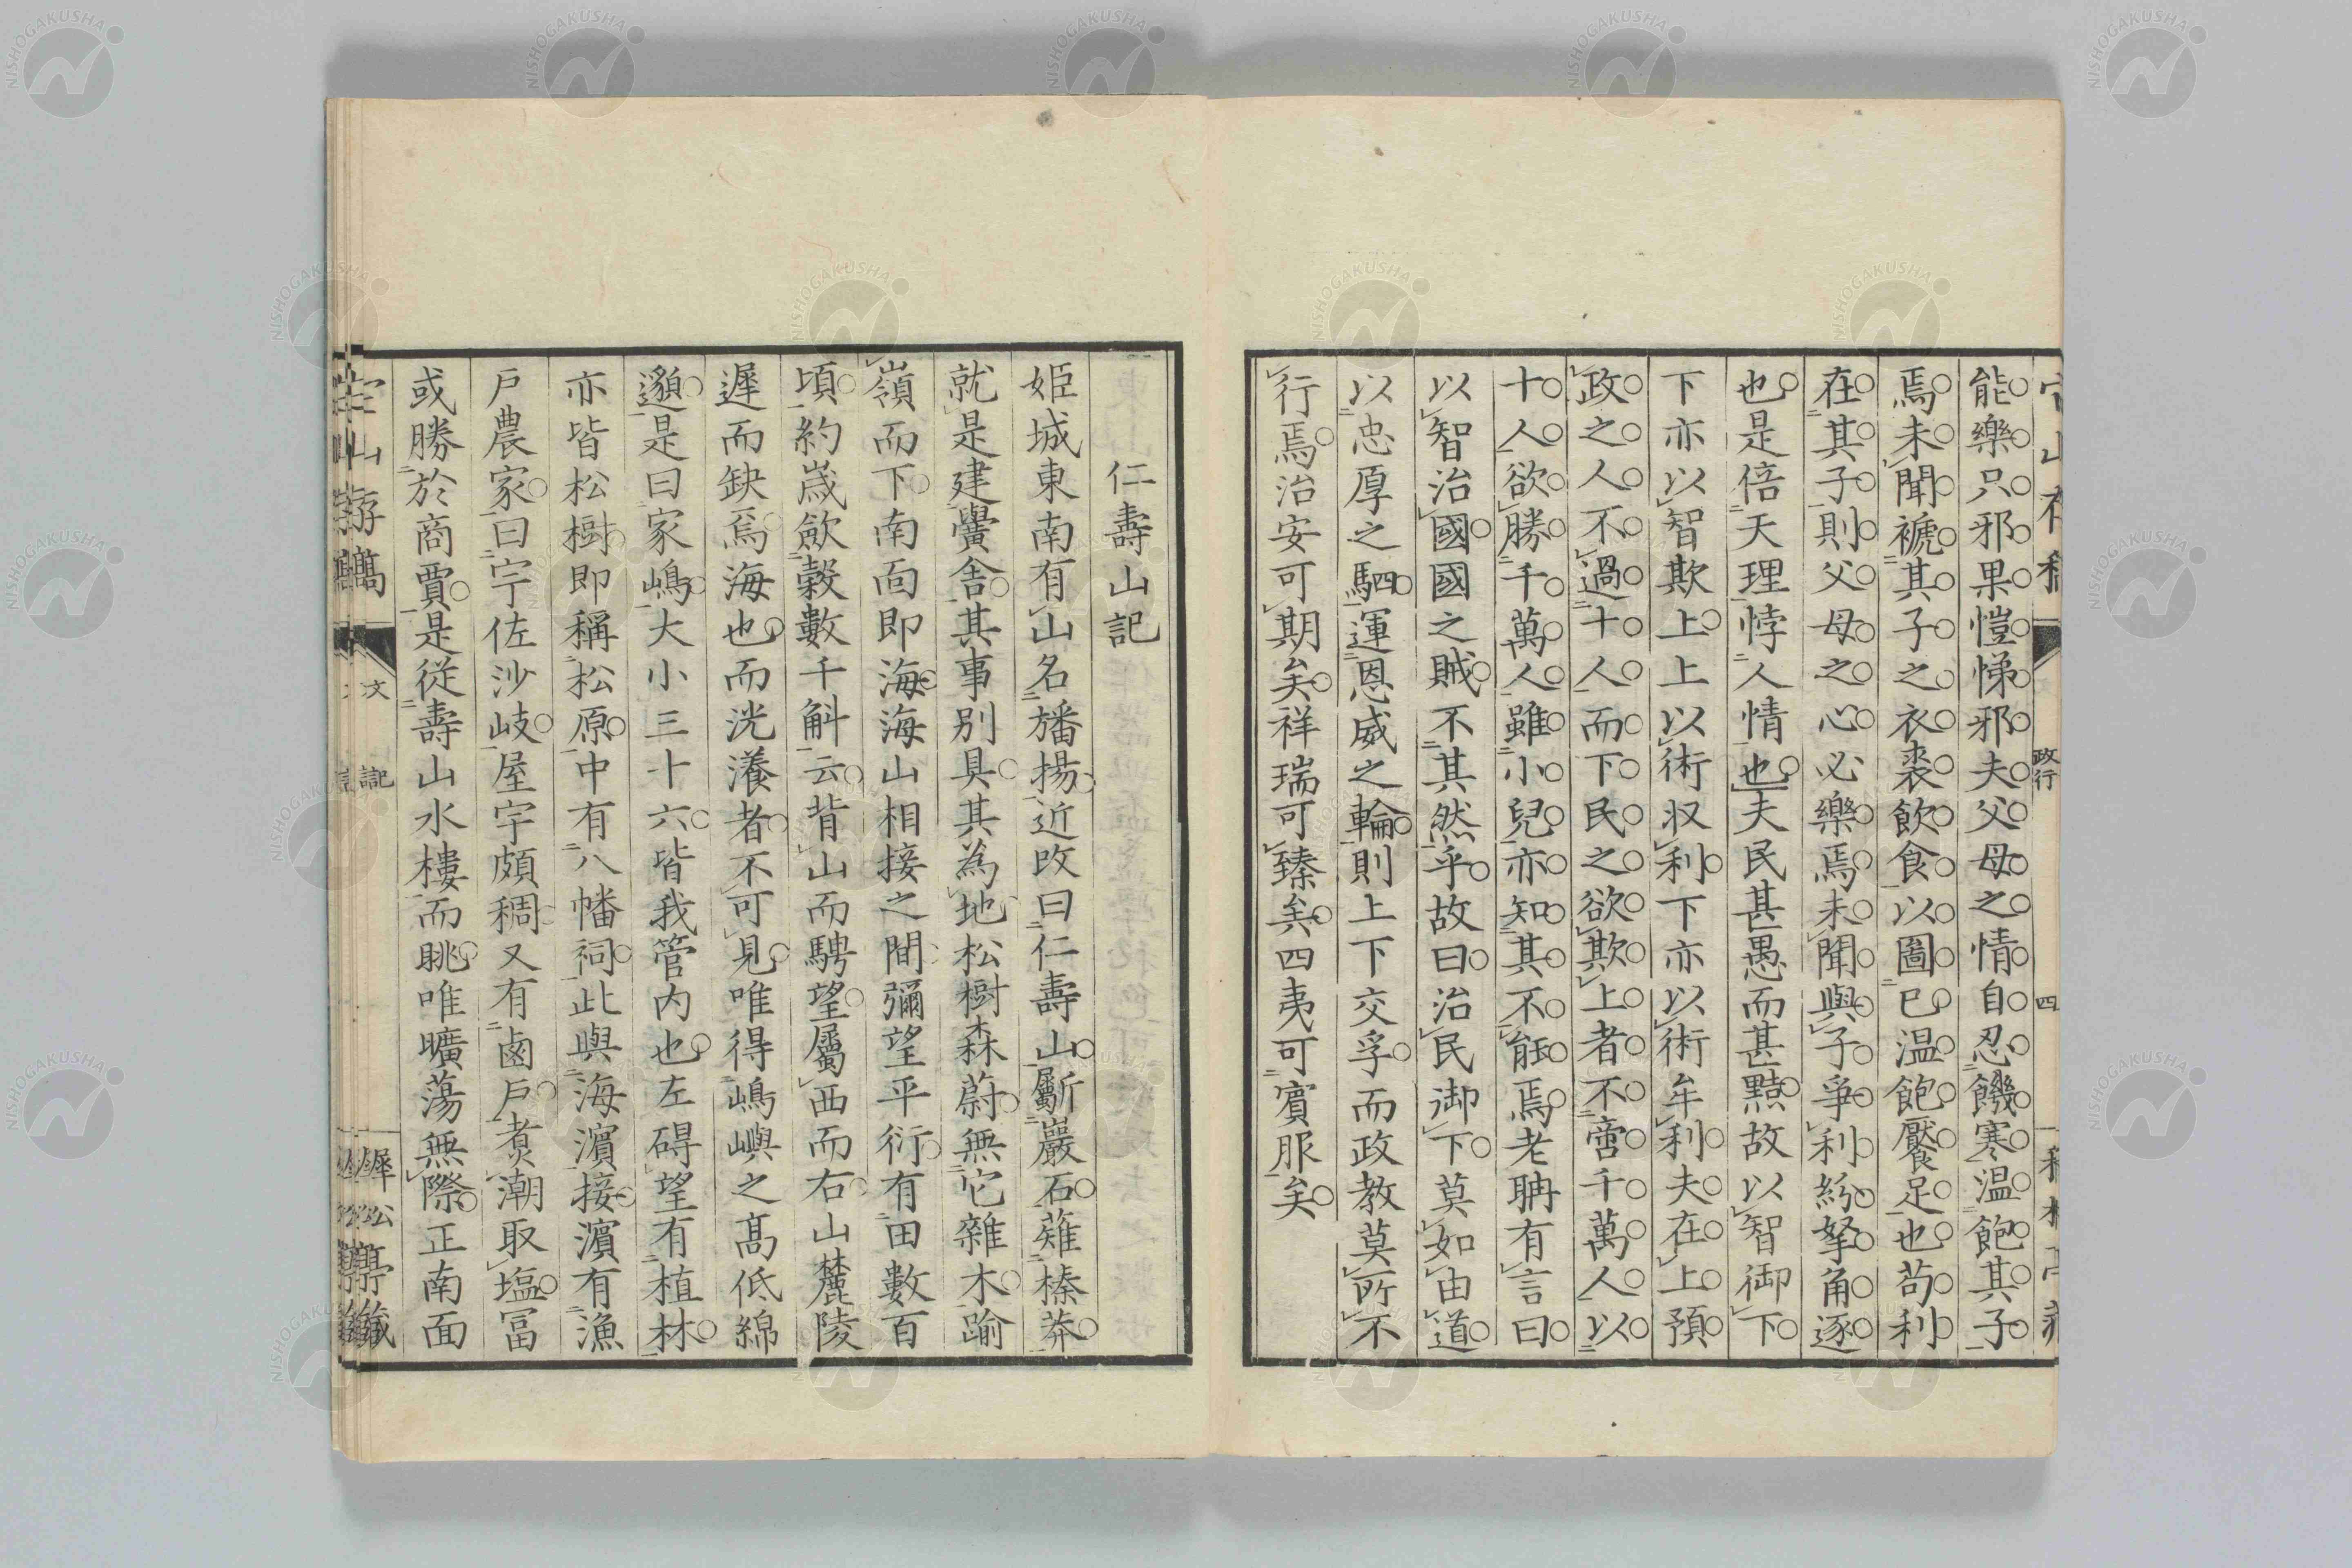 能樂只邪果愷悌邪夫父母之情自忍饑寒温飽其子
焉未聞褫其子之衣裘飲食以圖已温飽饜足也苟利
在其子則父母之心必樂焉未聞與子爭利紛拏角逐
也是倍天理悖人情也夫民甚愚而甚黠故以智御下
下亦以智欺上上以術収利下亦以術牟利夫在上預
政之人不過十人而下民之欲欺上者不啻千萬人以
十人欲勝千萬人雖小兒亦知其不能焉老聃有言曰
以智治國國之賊不其然乎故曰治民御下莫如由道
以忠厚之駟運恩威之輪則上下交孚而政教莫所不
行焉治安可期矣祥瑞可臻矣四夷可賓服矣
政行
四
仁壽山記
姫城東南有山名旙揚近改曰仁壽山斸巖石薙榛莽
就是建黌舎其事别具其為地松樹森蔚無它雜木踰
嶺而下南面即海海山相接之間彌望平衍有田數百
頃約歳歛穀數千斛云背山而騁望屬西而右山麓陵
遲而缺焉海也而洸瀁者不可見唯得嶋嶼之髙低綿
邈是曰家嶋大小三十六皆我管内也左碍望有植林
亦皆松樹即稱松原中有八幡祠此與海濱接濱有漁
戸農家曰宇佐沙岐屋宇頗稠又有鹵戸煮潮取塩冨
或勝於商賈是従壽山水樓而眺唯曠蕩無際正南面
文
記
犀松亭藏